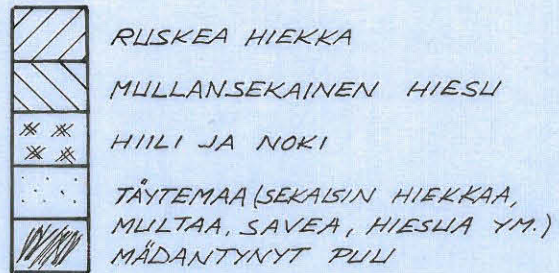 RUSKEA HIEKKA
MULLANSEKAINEN HIESU
HIILI JA NOKI
TÄYTEMAA (SEKAISIN HIEKKAA,
MULTAA, SAVEA, HIESUA YM.)
MÄDÄNTYNYT PUU